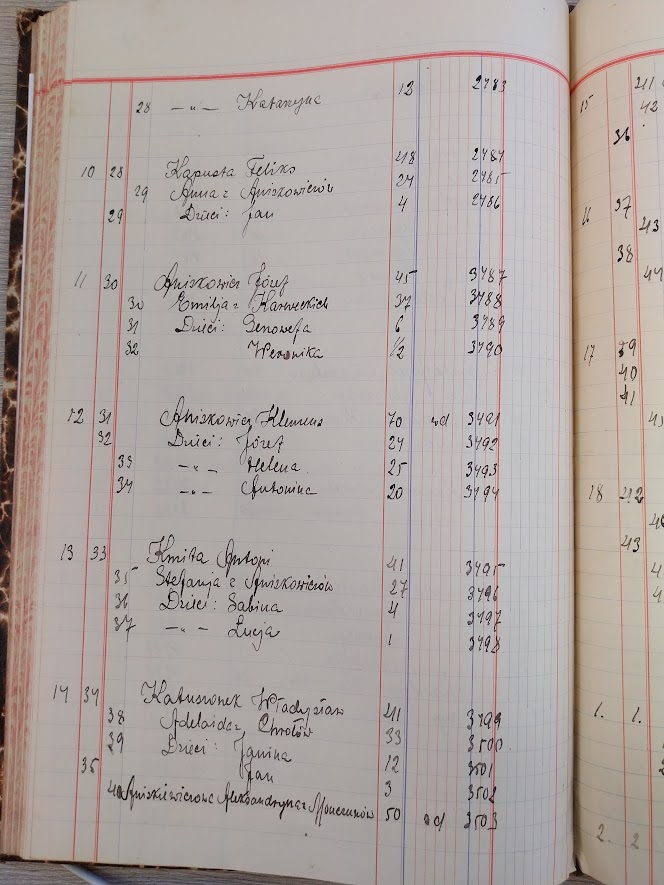 28 — " — Katarzyna 13 2783
10 28 Kapusta Feliks 48 2784
29 Anna z Aniszkowiczów 24 2785
29 Dzieci: Jan 4 2786
11 30 Aniszkowicz Józef 45 3787
30 Emilja z Karneckich 37 3788
31 Dzieci: Genowefa 6 3789
32 Weronika 1/2 3790
12 31 Aniszkowicz Klemens 70 wd 3791
32 Dzieci: Józef 24 3792
33 — " — Helena 25 3793
34 — " — Antonina 20 3794
13 33 Kmita Antoni 41 3795
35 Stefanja z Aniszkowiczów 27 3796
36 Dzieci: Sabina 4 3797
37 — " — Łucja 1 3798
14 34 Katuszonek Władysław 41 3799
38 Adelaida z Chrołów 33 3500
39 Dzieci: Janina 12 3501
35 Jan 3 3502
40 Aniskiewiczowa Aleksandryna z 50 wd 3503
15
41
42
36
16 37
43
38
44
17 39
40
41
18 42
43
1. 1.
2. 2